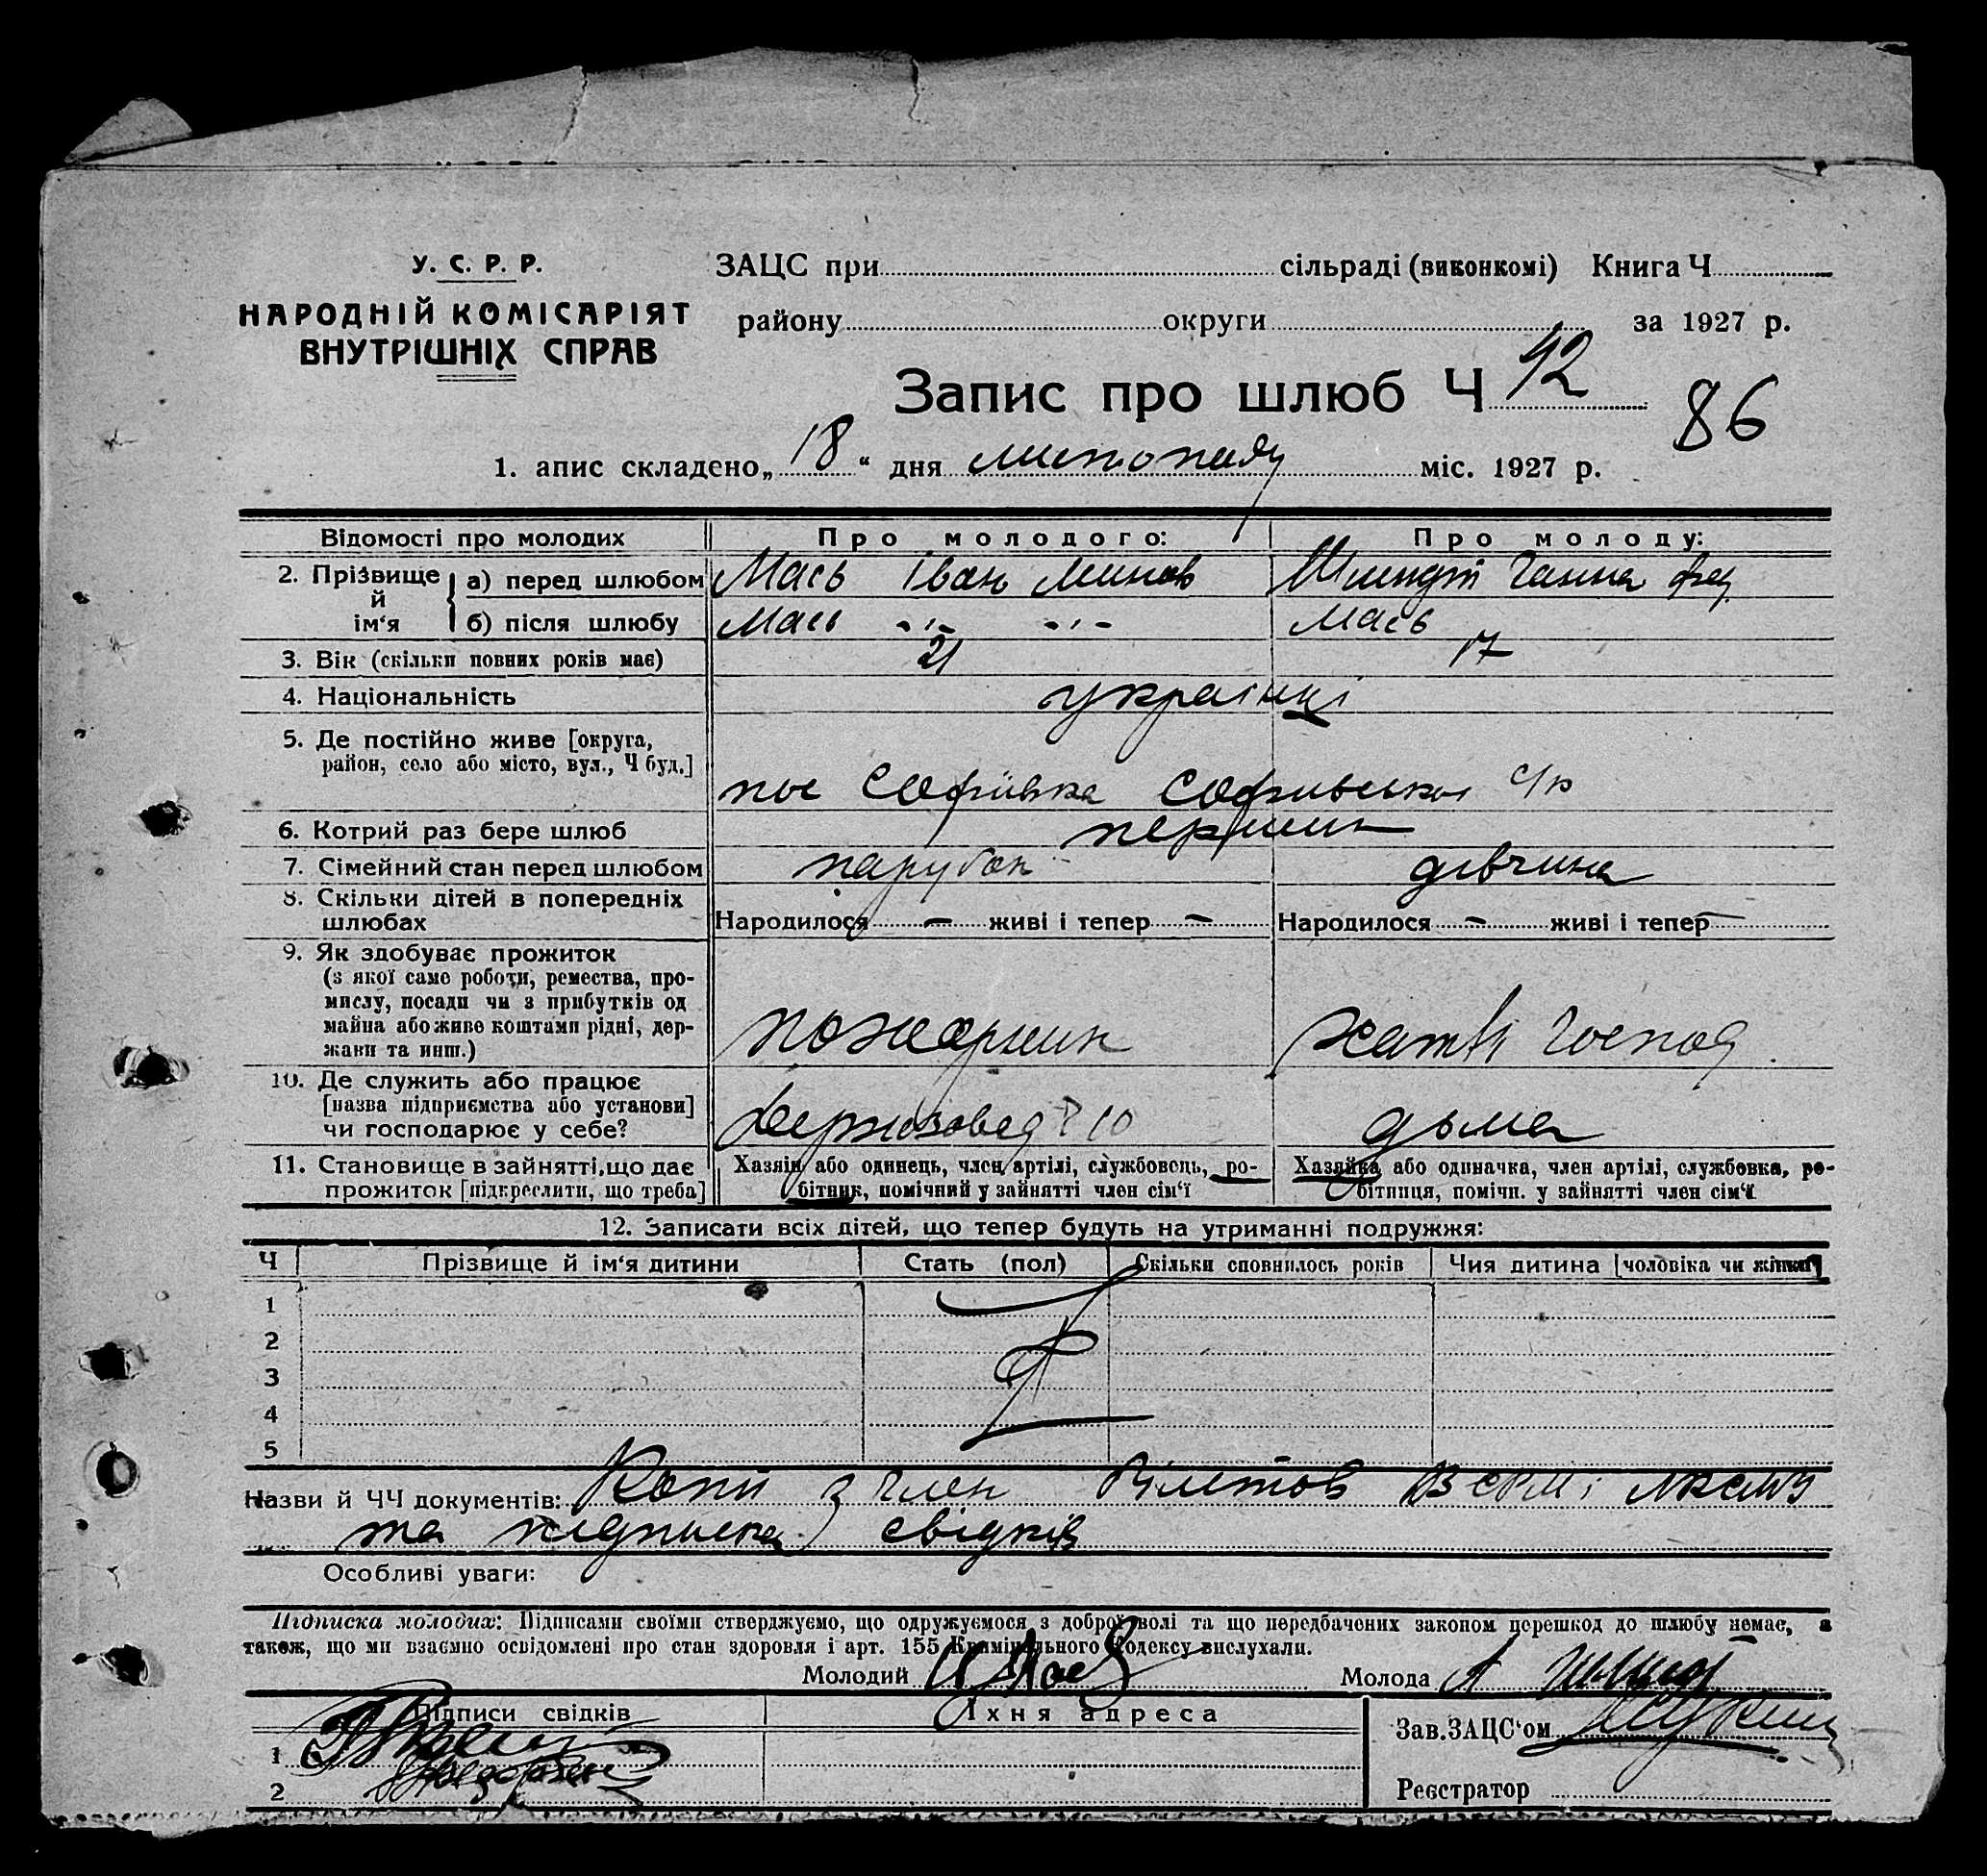 У. С. Р. Р.
НАРОДНІЙ КОМІСАРІЯТ
ВНУТРІШНІХ СПРАВ
ЗАЦС при сільраді (виконкомі) Книга Ч
району округи за 1927 р.
Запис про шлюб Ч 42
86
1. апис складено „18“ дня листопаду міс. 1927 р.
Відомості про молодих Про молодого: Про молоду:
2. Прізвище й ім‘я
а) перед шлюбом Мась Іван Минов Шмидт Ганна Фед.
б) після шлюбу Мась -,,- -,,- Мась
3. Вік (скільки повних років має) 21 17
4. Національність українці
5. Де постійно живе [округа,
район, село або місто, вул., Ч буд.]
пос Софіївка Софиевської с/р
6. Котрий раз бере шлюб перший
7. Сімейний стан перед шлюбом парубок дівчина
8. Скільки дітей в попередніх
шлюбах Народилося — живі і тепер — Народилося — живі і тепер —
9. Як здобуває прожиток
(з якої саме роботи, ремества, про-
мислу, посади чи з прибутків од
майна або живе коштами рідні, дер-
жави та инш.)
пожарник хатнє господ.
10. Де служить або працює
[назва підприємства або установи]
чи господарює у себе?
дома
11. Становище в зайнятті, що дає
прожиток [підкреслити, що треба]
Хазяїн або одинець, член артілі, службовець, ро-
бітник, помічний у зайнятті член сім‘ї
Хазяйка або одиначка, член артілі, службовка, ро-
бітниця, помічн. у зайнятті член сім‘ї
12. Записати всіх дітей, що тепер будуть на утриманні подружжя:
Ч Прізвище й ім‘я дитини Стать (пол) Скільки сповнилось років Чия дитина [чоловіка чи жінки]
1
2
3
4
5
Назви й ЧЧ документів: Копії з член білетов ВСРМ і ЛКСМУ
та підписка свідків
Особливі уваги:
Підписка молодих: Підписами своїми стверджуємо, що одружуємося з доброї волі та що передбачених законом перешкод до шлюбу немає, а
також, що ми взаємно освідомлені про стан здоровля і арт. 155 Кримінального Кодексу вислухали.
Молодий И Мась Молода А Шмидт
Підписи свідків Їхня адреса
1
2
Зав. ЗАЦС‘ом
Реєстратор